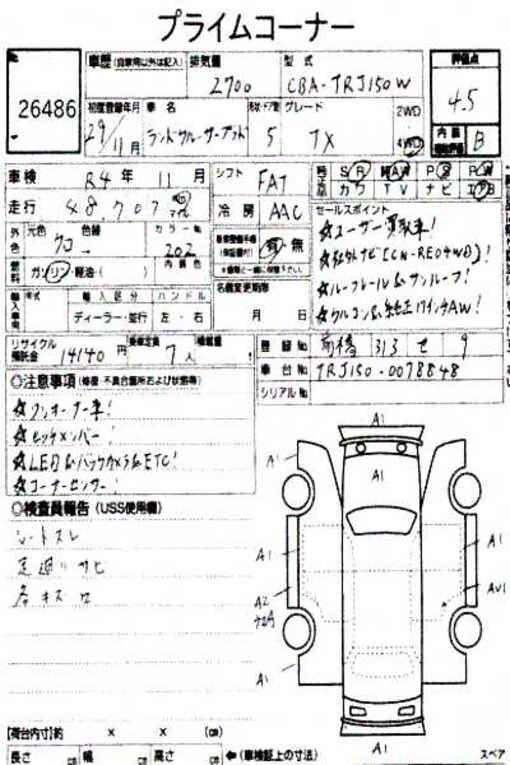 プライムコーナー
No.
26486
車歴 (自家用以外は記入)
排気量
2700
型式
CBA-TRJ150W
評価点
4.5
内装
B
初度登録年月
29年11月
車名
ランドクルーザープラド
ドア数
5
グレード
TX
2WD
4WD
車検 R4年 11月
走行 48,707
外色 元色 色替
クロ
カラーNo.
202
燃料 ガソリン・軽油・( )
内装色
輸入車
年式 輸入区分 ハンドル
ディーラー・並行 左・右
シフト FAT
冷房 AAC
有・無
名義変更期限
月 日
SR AW PS PW
カワ TV ナビ エアB
セールスポイント
☆ユーザー買取車!
☆社外ナビ(CN-RE04WD)!
☆ルーフレール&サンルーフ!
☆クルコン&純正17インチAW!
リサイクル預託金 14140円
乗車定員 7人
積載量
登録No. 前橋 313 せ 9
車台No. TRJ150-0078848
シリアルNo.
◎注意事項(修復・不具合箇所および状態等)
☆ワンオーナー車!
☆ヒッチメンバー!
☆LED&バックカメラ&ETC!
☆コーナーセンサー!
◎検査員報告 (USS使用欄)
シートスレ
足廻りサビ
各キズ
A1
A1
A1
A1
A1
A2
AU1
A1
A1
[荷台内寸]約 × × (cm)
長さ cm 幅 cm 高さ cm
←(車検証上の寸法)
スペア